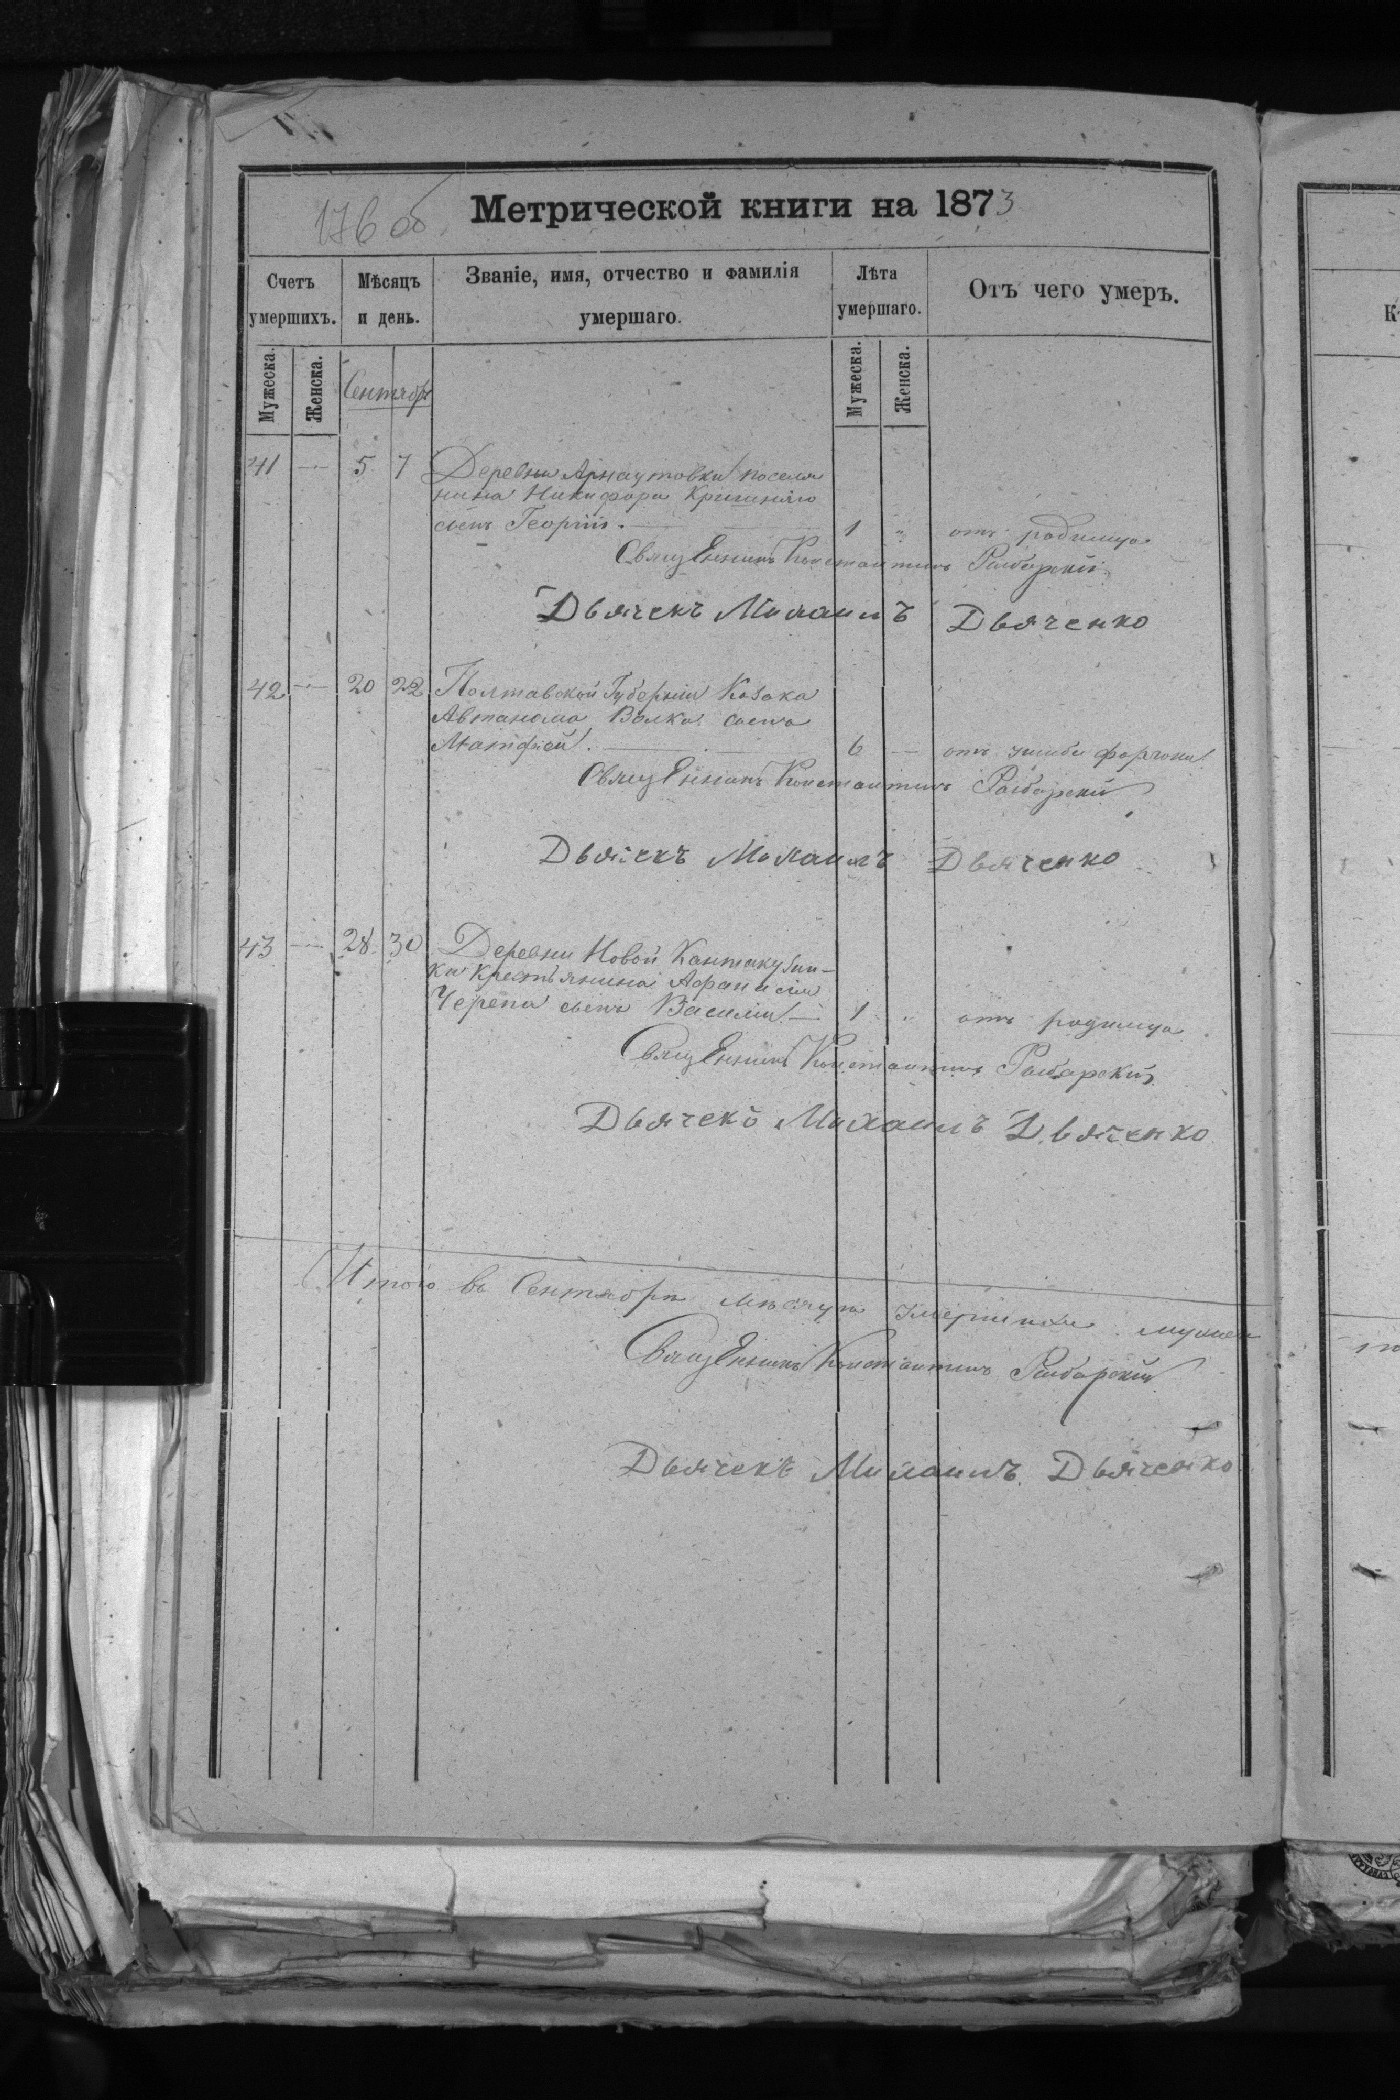 176 об.
Метрической книги на 1873
Счетъ умершихъ.
Мѣсяцъ и день.
Званіе, имя, отчество и фамилія умершаго.
Лѣта умершаго.
Отъ чего умеръ.
Мужеска.
Женска.
Сентябрь
Мужеска.
Женска.
41 — 5 7 Деревни Арнаутовки поселя
нина Никифора
сынъ Георгій. — 1 " отъ родимца
Священникъ Константинъ
Дьячекъ Михаилъ Дьяченко
42 — 20 22 Полтавской Губерніи Козака
Автанома Волка сынъ
Матфей. — 6 — отъ
Священникъ Константинъ
Дьячекъ Михаилъ Дьяченко
43 — 28 30 Деревни Новой Кантакузин-
ки Крестьянина Афанасія
Черепа сынъ Василій — 1 " отъ родимца
Священникъ Константинъ
Дьячекъ Михаилъ Дьяченко
Итого въ Сентябрѣ мѣсяцѣ умершихъ
Священникъ Константинъ
Дьячекъ Михаилъ Дьяченко